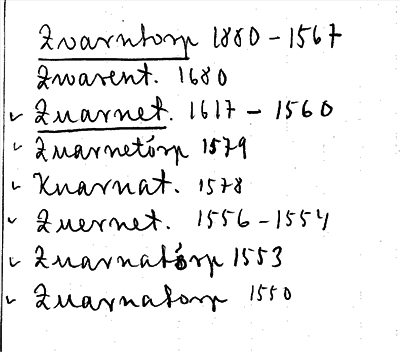 Zvarntorp 1880 - 1567
Zwarent. 1680
Zuarnet. 1617 - 1560
Zuarnetórp 1579
Knarnat. 1578
Zuernet. 1556 - 1554
Zuarnatórp 1553
Zuarnatorp 1550